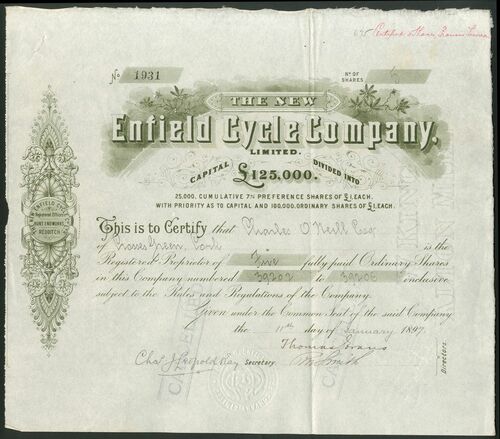 No 1931
No OF SHARES 5
THE NEW
Enfield Cycle Company,
LIMITED.
CAPITAL £125,000. DIVIDED INTO
25,000, CUMULATIVE 7% PREFERENCE SHARES OF £1 EACH.
WITH PRIORITY AS TO CAPITAL AND 100,000, ORDINARY SHARES OF £1 EACH.
This is to Certify that Charles O'Neill Esq
of Green, Cork is the
Registered Proprietor of Five fully paid Ordinary Shares
in this Company numbered 39202 to 39206 inclusive
subject to the Rules and Regulations of the Company.
Given under the Common Seal of the said Company
the 11th day of January 1897.
Thomas Evans
Smith
Directors.
Chas. J. Leopold Secretary.
Registered Offices
HUNT END WORKS
REDDITCH